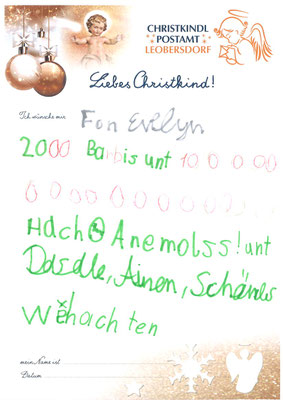 CHRISTKINDL
POSTAMT
LEOBERSDORF
Liebes Christkind!
Ich wünsche mir Fon Evelyn
2000 Barbis unt 100000
00000000000
Hach Anemolss! unt
Dasdle, Ainen, Schänes
Wehachten
mein Name ist
Datum